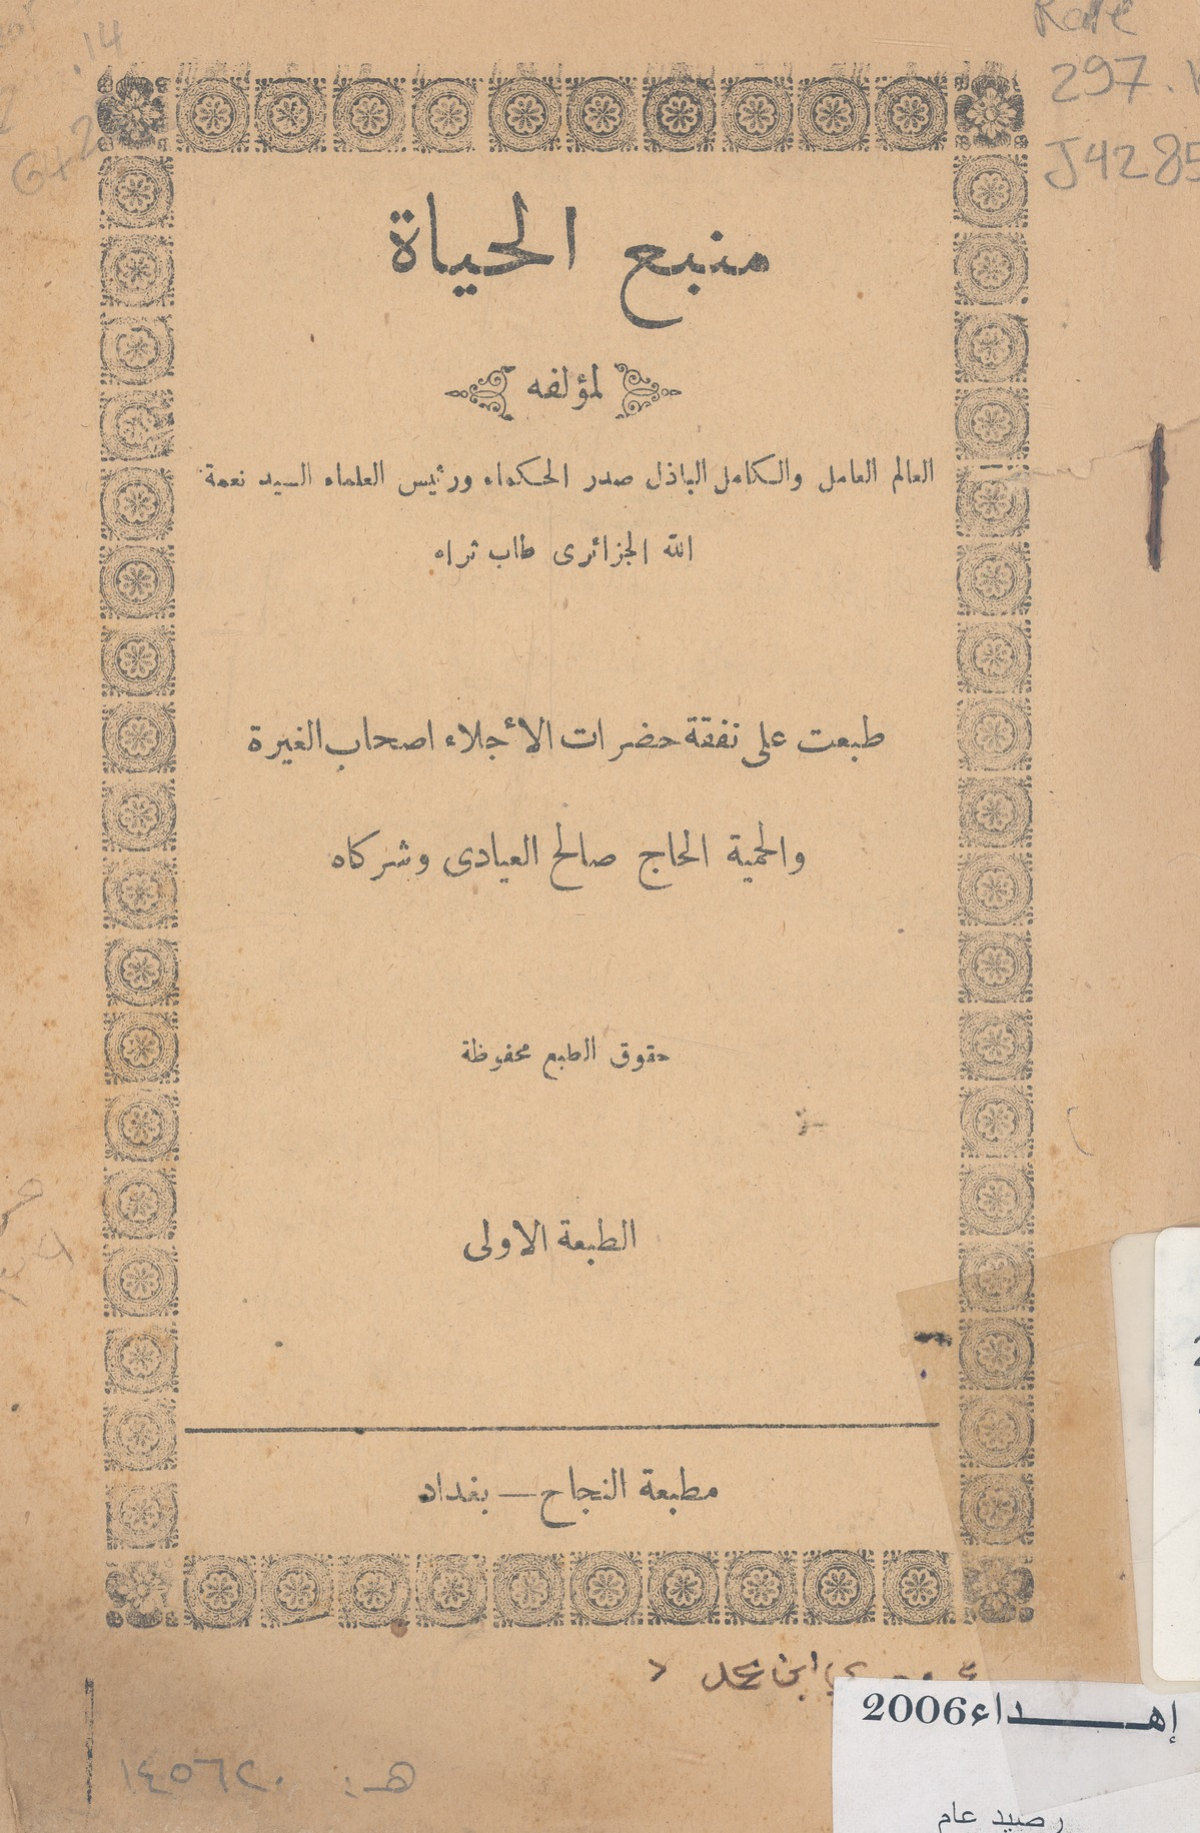 Rare
297.
J4285
14
642
منبع الحياة
لمؤلفه
العالم العامل والكامل الباذل صدر الحكماء ورئيس العلماء السيد نعمة
الله الجزائرى طاب ثراه
طبعت على نفقة حضرات الأجلاء اصحاب الغيرة
والحمية الحاج صالح العيادى وشركاه
حقوق الطبع محفوظة
الطبعة الاولى
مطبعة النجاح — بغداد
ابن محمد
إهـــداء2006
رصيد عام
هـ: ١٤٥٦٢٠